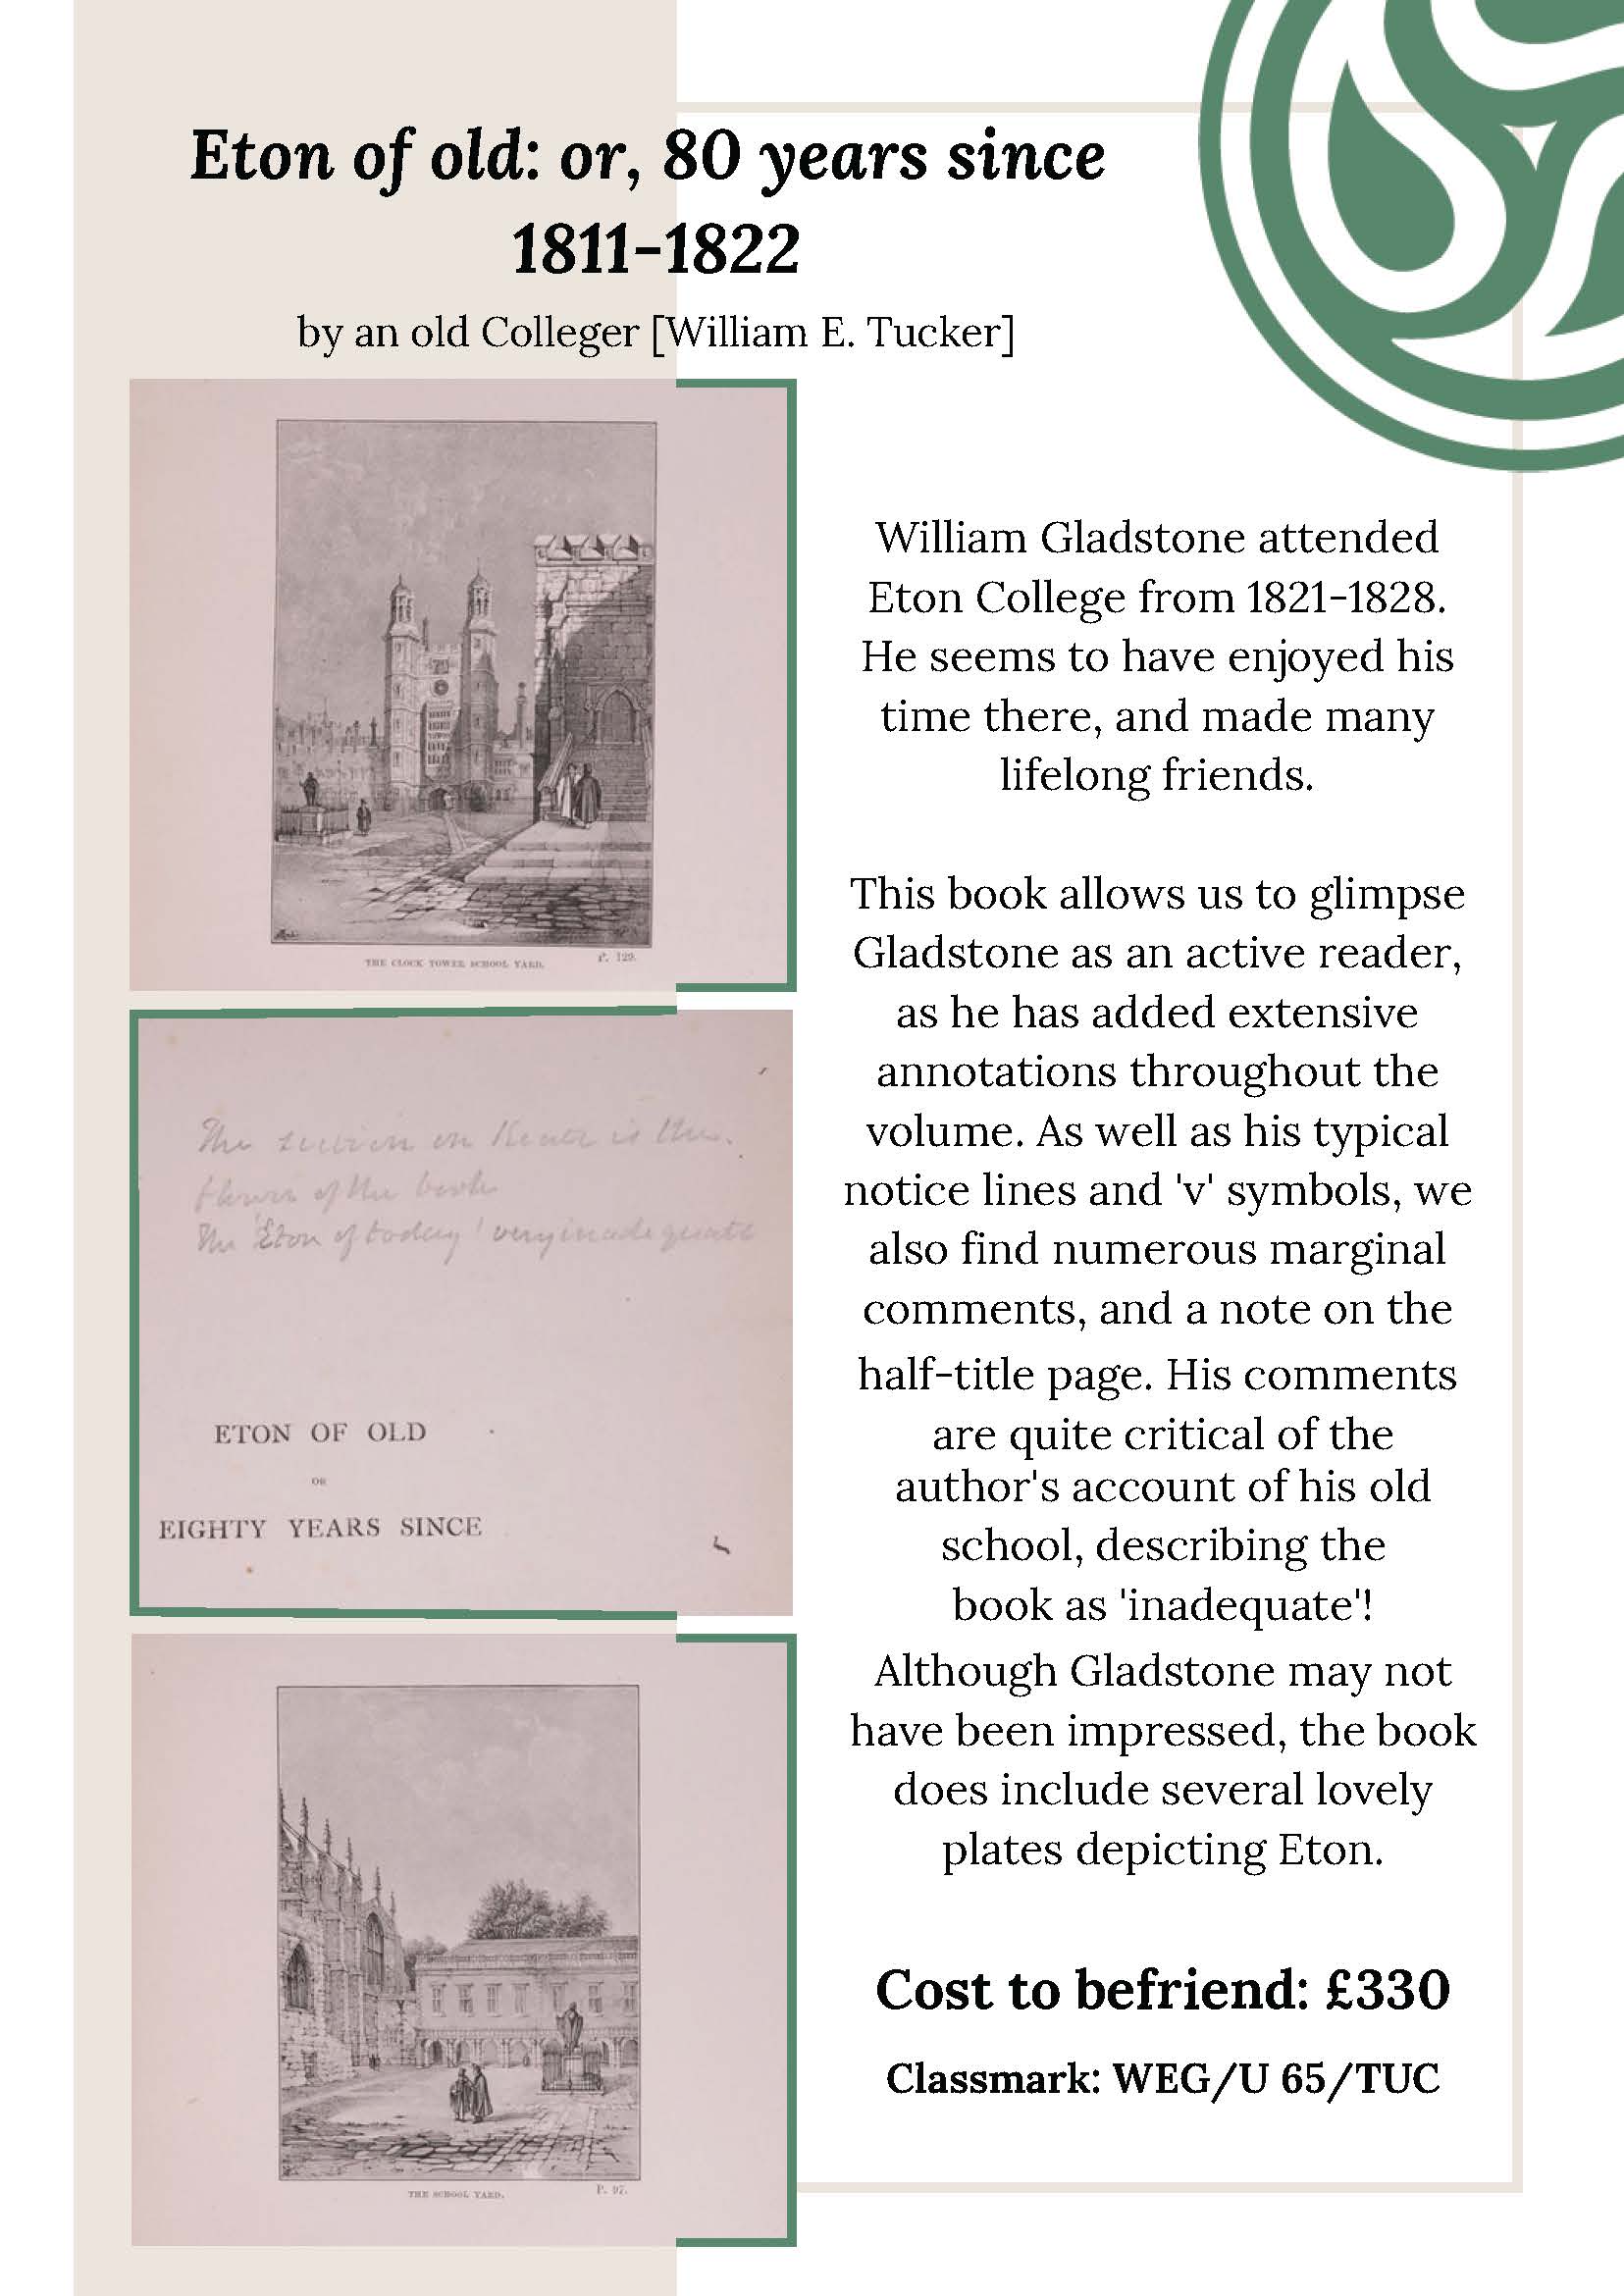 Eton of old: or, 80 years since
1811-1822
by an old Colleger [William E. Tucker]
THE CLOCK TOWER SCHOOL YARD.
P. 129.
The section on Keate is the
flower of the book
The 'Eton of today' very inadequate
ETON OF OLD
OR
EIGHTY YEARS SINCE
THE SCHOOL YARD.
P. 97.
William Gladstone attended
Eton College from 1821-1828.
He seems to have enjoyed his
time there, and made many
lifelong friends.
This book allows us to glimpse
Gladstone as an active reader,
as he has added extensive
annotations throughout the
volume. As well as his typical
notice lines and 'v' symbols, we
also find numerous marginal
comments, and a note on the
half-title page. His comments
are quite critical of the
author's account of his old
school, describing the
book as 'inadequate'!
Although Gladstone may not
have been impressed, the book
does include several lovely
plates depicting Eton.
Cost to befriend: £330
Classmark: WEG/U 65/TUC